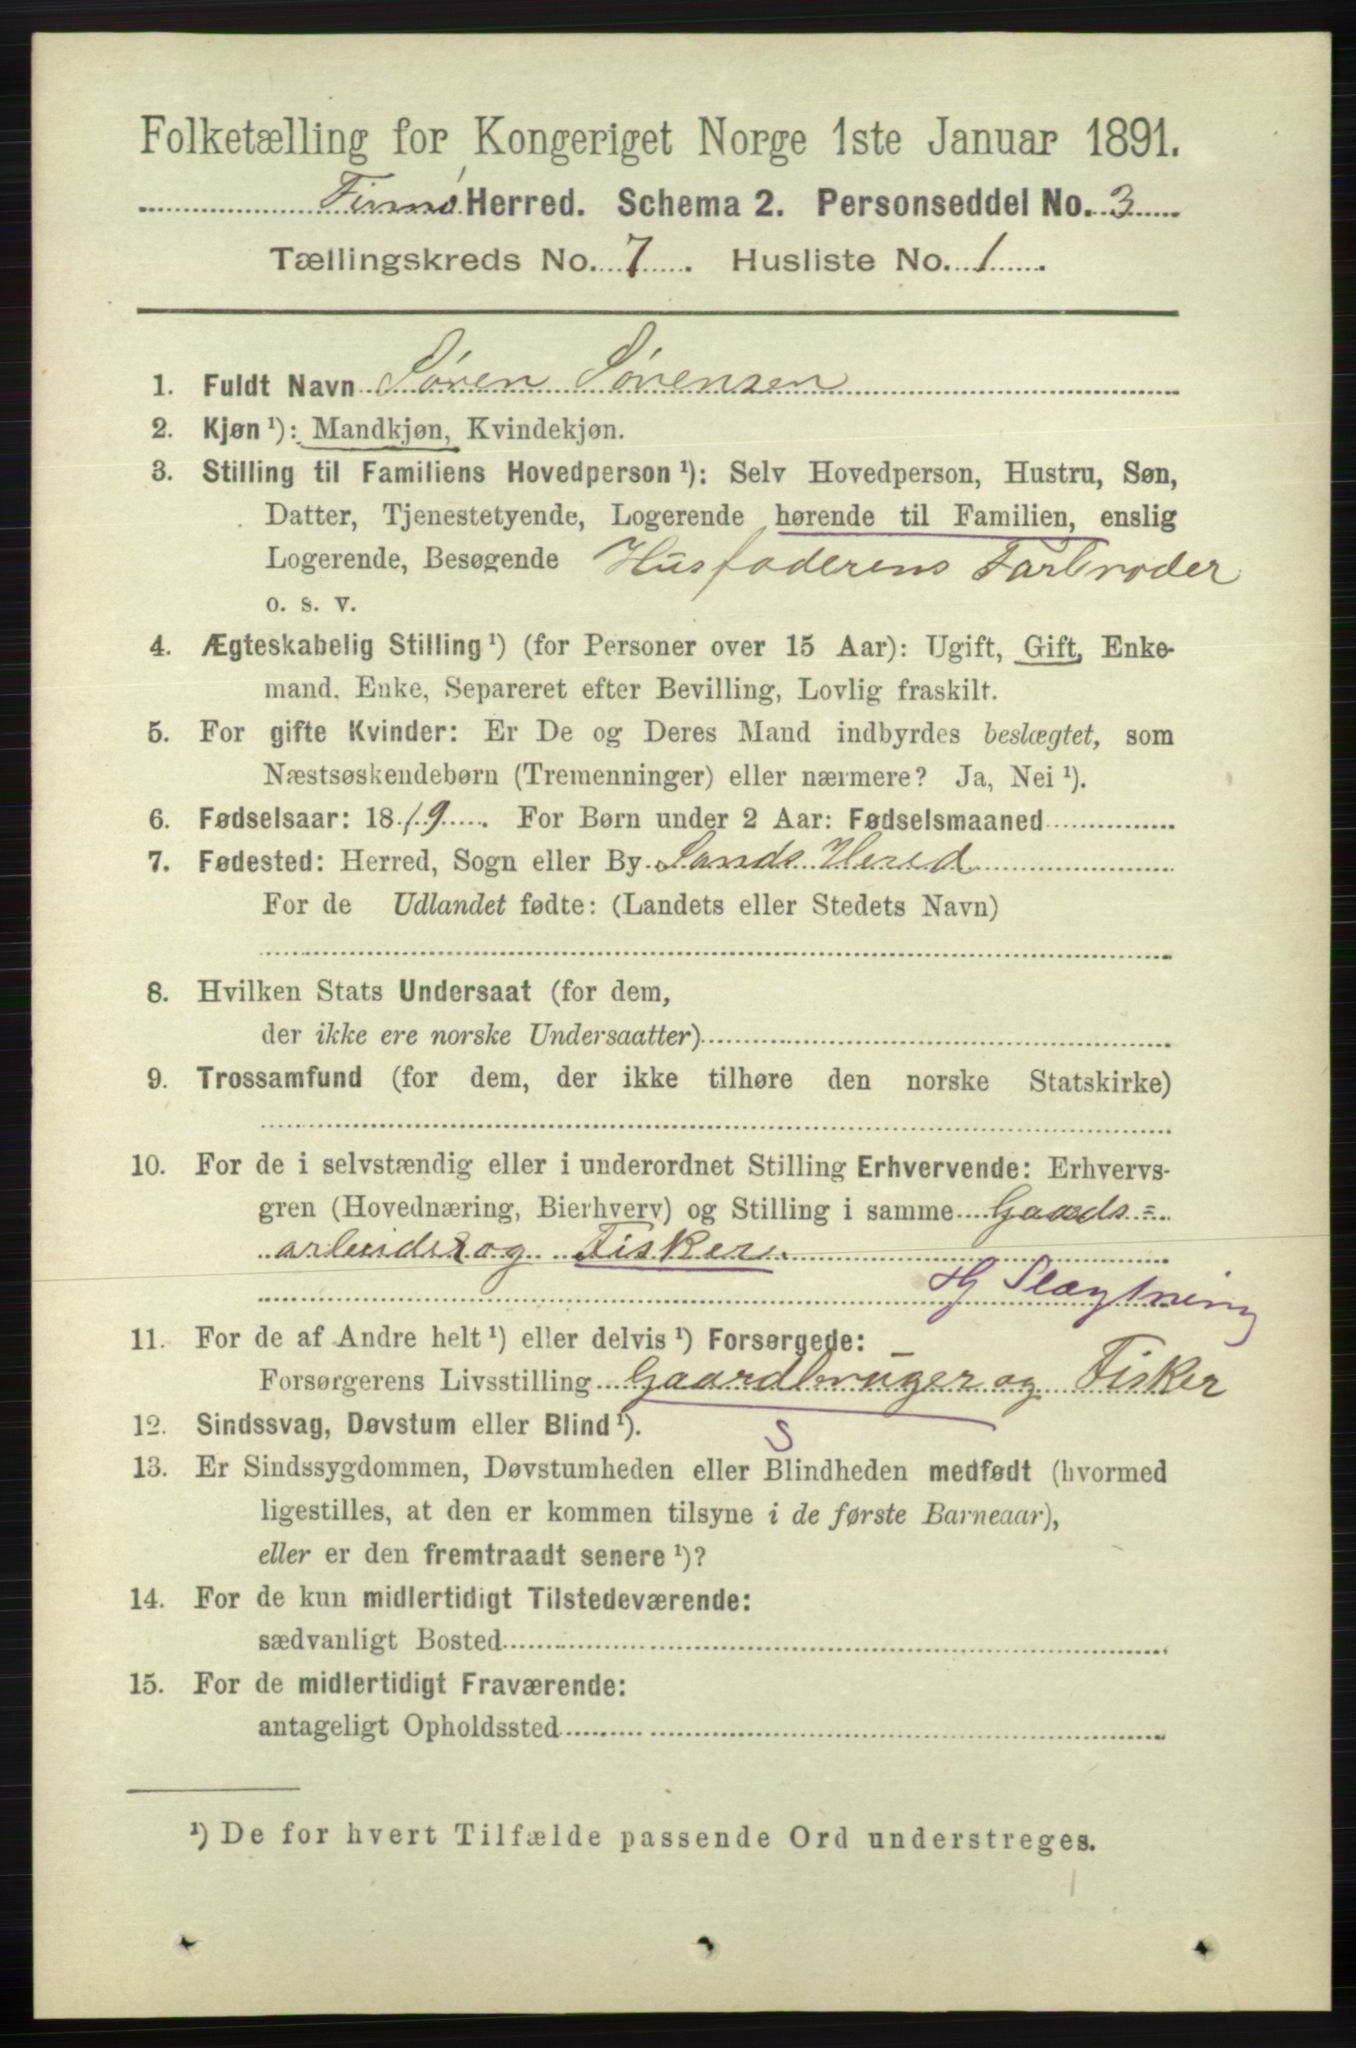 Folketælling for Kongeriget Norge 1ste Januar 1891.
Finnø Herred. Schema 2. Personseddel No. 3
Tællingskreds No. 7. Husliste No. 1
1. Fuldt Navn Søren Sørensen
2. Kjøn ¹): Mandkjøn, Kvindekjøn.
3. Stilling til Familiens Hovedperson ¹): Selv Hovedperson, Hustru, Søn,
Datter, Tjenestetyende, Logerende hørende til Familien, enslig
Logerende, Besøgende Husfaderens Farbroder
o. s. v.
4. Ægteskabelig Stilling ¹) (for Personer over 15 Aar): Ugift, Gift, Enke-
mand, Enke, Separeret efter Bevilling, Lovlig fraskilt.
5. For gifte Kvinder: Er De og Deres Mand indbyrdes beslægtet, som
Næstsøskendebørn (Tremenninger) eller nærmere? Ja, Nei ¹).
6. Fødselsaar: 1819. For Børn under 2 Aar: Fødselsmaaned
7. Fødested: Herred, Sogn eller By Sands Hered
For de Udlandet fødte: (Landets eller Stedets Navn)
8. Hvilken Stats Undersaat (for dem,
der ikke ere norske Undersaatter)
9. Trossamfund (for dem, der ikke tilhøre den norske Statskirke)
10. For de i selvstændig eller i underordnet Stilling Erhvervende: Erhvervs-
gren (Hovednæring, Bierhverv) og Stilling i samme Gaards=
arbeider og Fisker.
Hj Slægtning
11. For de af Andre helt ¹) eller delvis ¹) Forsørgede:
Forsørgerens Livsstilling Gaardbruger og Fisker
12. Sindssvag, Døvstum eller Blind ¹). S
13. Er Sindssygdommen, Døvstumheden eller Blindheden medfødt (hvormed
ligestilles, at den er kommen tilsyne i de første Barneaar),
eller er den fremtraadt senere ¹)?
14. For de kun midlertidigt Tilstedeværende:
sædvanligt Bosted
15. For de midlertidigt Fraværende:
antageligt Opholdssted
¹) De for hvert Tilfælde passende Ord understreges.